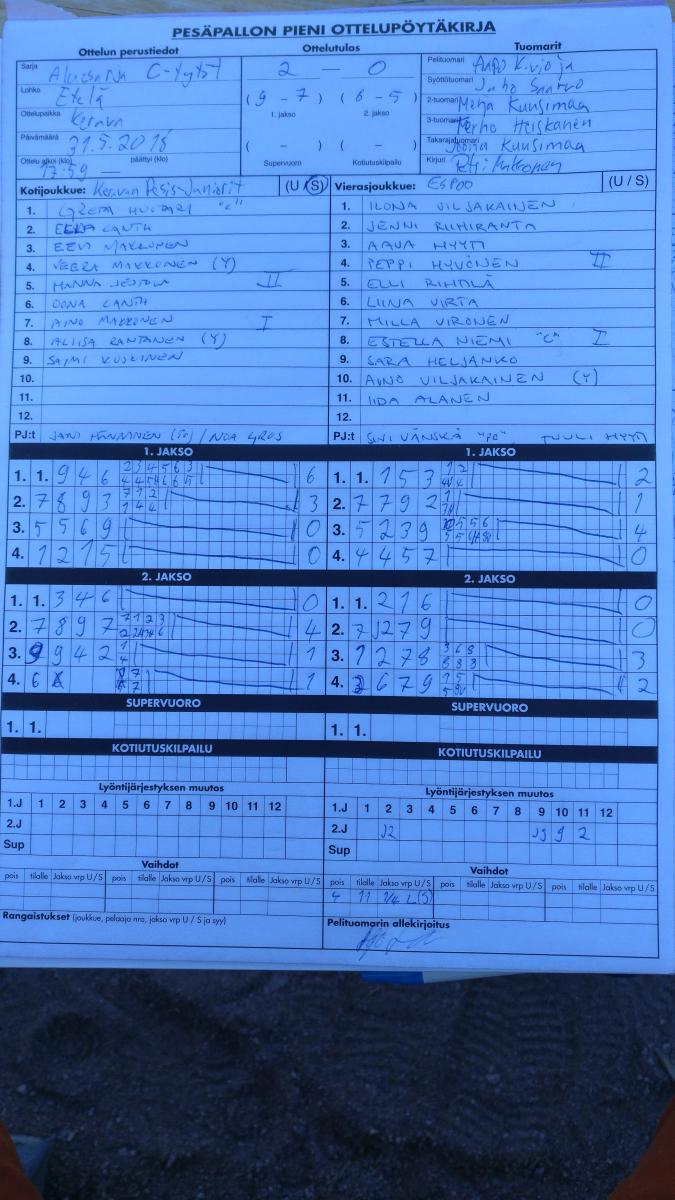 PESÄPALLON PIENI OTTELUPÖYTÄKIRJA
Ottelun perustiedot
Ottelutulos
Tuomarit
Sarja
C-tytöt
2 — 0
Pelituomari
Lohko
Etelä
(9 - 7) (6 - 5)
1. jakso 2. jakso
Syöttötuomari
Juho
Ottelupaikka
Kerava
2-tuomari
Merja Kuusimaa
3-tuomari
Terho Heiskanen
Päivämäärä
31.5.2018
( - ) ( - )
Supervuoro Kotiutuskilpailu
Takarajatuomari
Kuusimaa
Ottelu alkoi (klo) päättyi (klo)
17:59 —
Kirjuri
Petri Makkonen
Kotijoukkue: Keravan Pesis-Juniorit (U / S)
Vierasjoukkue: ESPOO (U / S)
1. GRETA HUOTARI "C"
2. CANTH
3. EEVI MAKKONEN
4. VEERA MAKKONEN (Y)
5. HANNA II
6. OONA CANTH
7. AINO MAKKONEN I
8. ALIISA RANTANEN (Y)
9. SAIMI KOSKINEN
10.
11.
12.
PJ:t JANI HÄNNINEN / NOA
1. ILONA VILJAKAINEN
2. JENNI RIIHIRANTA
3. AAVA HYYTI
4. PEPPI HYVÖNEN II
5. ELLI
6. LIINA VIRTA
7. MILLA VIRONEN
8. ESTELLA NIEMI "C" I
9. SARA HELJANKO
10. AINO VILJAKAINEN (Y)
11. IIDA ALANEN
12.
PJ:t SINI VÄNSKÄ "PJ", TUULI HYYTI
1. JAKSO
1. 1. 9 4 6 6
2. 7 8 9 3 3
3. 5 5 6 9 0
4. 1 2 1 5 0
1. JAKSO
1. 1. 1 5 3 2
2. 7 7 9 2 1
3. 5 2 3 9 4
4. 4 4 5 7 0
2. JAKSO
1. 1. 3 4 6 0
2. 7 8 9 7 4
3. 9 9 4 2 1
4. 6 1
2. JAKSO
1. 1. 2 1 6 0
2. 7 J2 7 9 0
3. 1 2 7 8 3
4. 3 6 7 9 2
SUPERVUORO
1. 1.
SUPERVUORO
1. 1.
KOTIUTUSKILPAILU
KOTIUTUSKILPAILU
Lyöntijärjestyksen muutos
1.J 1 2 3 4 5 6 7 8 9 10 11 12
2.J
Sup
Lyöntijärjestyksen muutos
1.J 1 2 3 4 5 6 7 8 9 10 11 12
2.J J2 J9 9 2
Sup
Vaihdot
pois tilalle Jakso vrp U / S pois tilalle Jakso vrp U / S pois tilalle Jakso vrp U / S
Vaihdot
pois tilalle Jakso vrp U / S pois tilalle Jakso vrp U / S pois tilalle Jakso vrp U / S
4 11 1/4 L(S)
Rangaistukset (joukkue, pelaaja nro, jakso vrp U / S ja syy)
Pelituomarin allekirjoitus